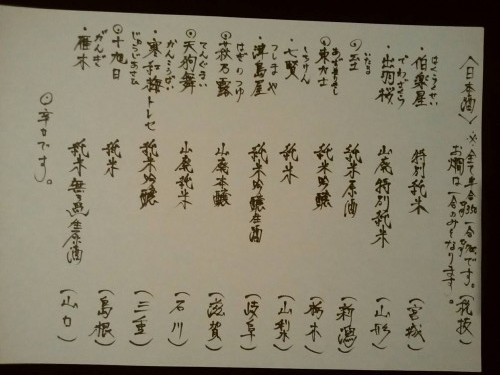 〈日本酒〉※全て半合350 一合700です。(税抜)
お燗は一合のみとなります。
はくらくせい
・伯楽星 特別純米 (宮城)
でわざくら
・出羽桜 山廃特別純米 (山形)
いたる
◎至 純米原酒 (新潟)
あずまりきし
◎東力士 純米吟醸 (栃木)
しちけん
・七賢 純米 (山梨)
つしまや
・津島屋 純米吟醸生酒 (岐阜)
はぎのつゆ
◎萩乃露 山廃本醸 (滋賀)
てんぐまい
◎天狗舞 山廃純米 (石川)
かんこうばい
・寒紅梅トレセ 純米吟醸 (三重)
じゅうじあさひ
◎十旭日 純米 (島根)
がんぎ
・雁木 純米無濾過生原酒 (山口)
◎辛口です。